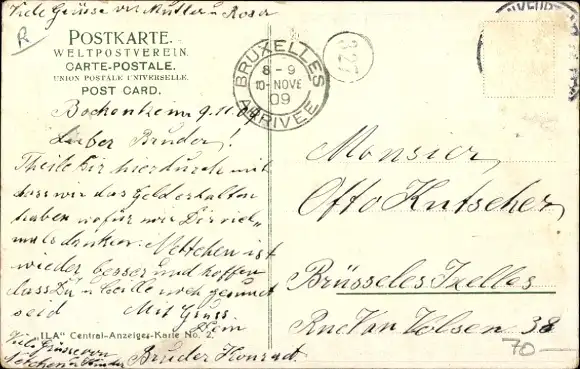 Viele Grüsse von Mutter u Rosa
R
POSTKARTE.
WELTPOSTVEREIN.
CARTE-POSTALE.
UNION POSTALE UNIVERSELLE.
POST CARD.
BRUXELLES
8 - 9
10-NOVE
09
ARRIVEE
327
Bockenheim 9.11.09
Lieber Bruder!
Theile Dir hierdurch mit
dass wir das Geld erhalten
haben wofür wir Dir viel„
mals danken. Nettchen ist
wieder besser und hoffen
dass Du u Cecile noch gesund
seid Mit Gruss.
Dein
Bruder Konrad.
Viele Grüsse von
Nettchen u Kinder
"ILA" Central-Anzeiger-Karte No. 2.
Monsier,
Otto Kutscher,
Brüsseles Ixelles
Rue Van Volsen 38
70-